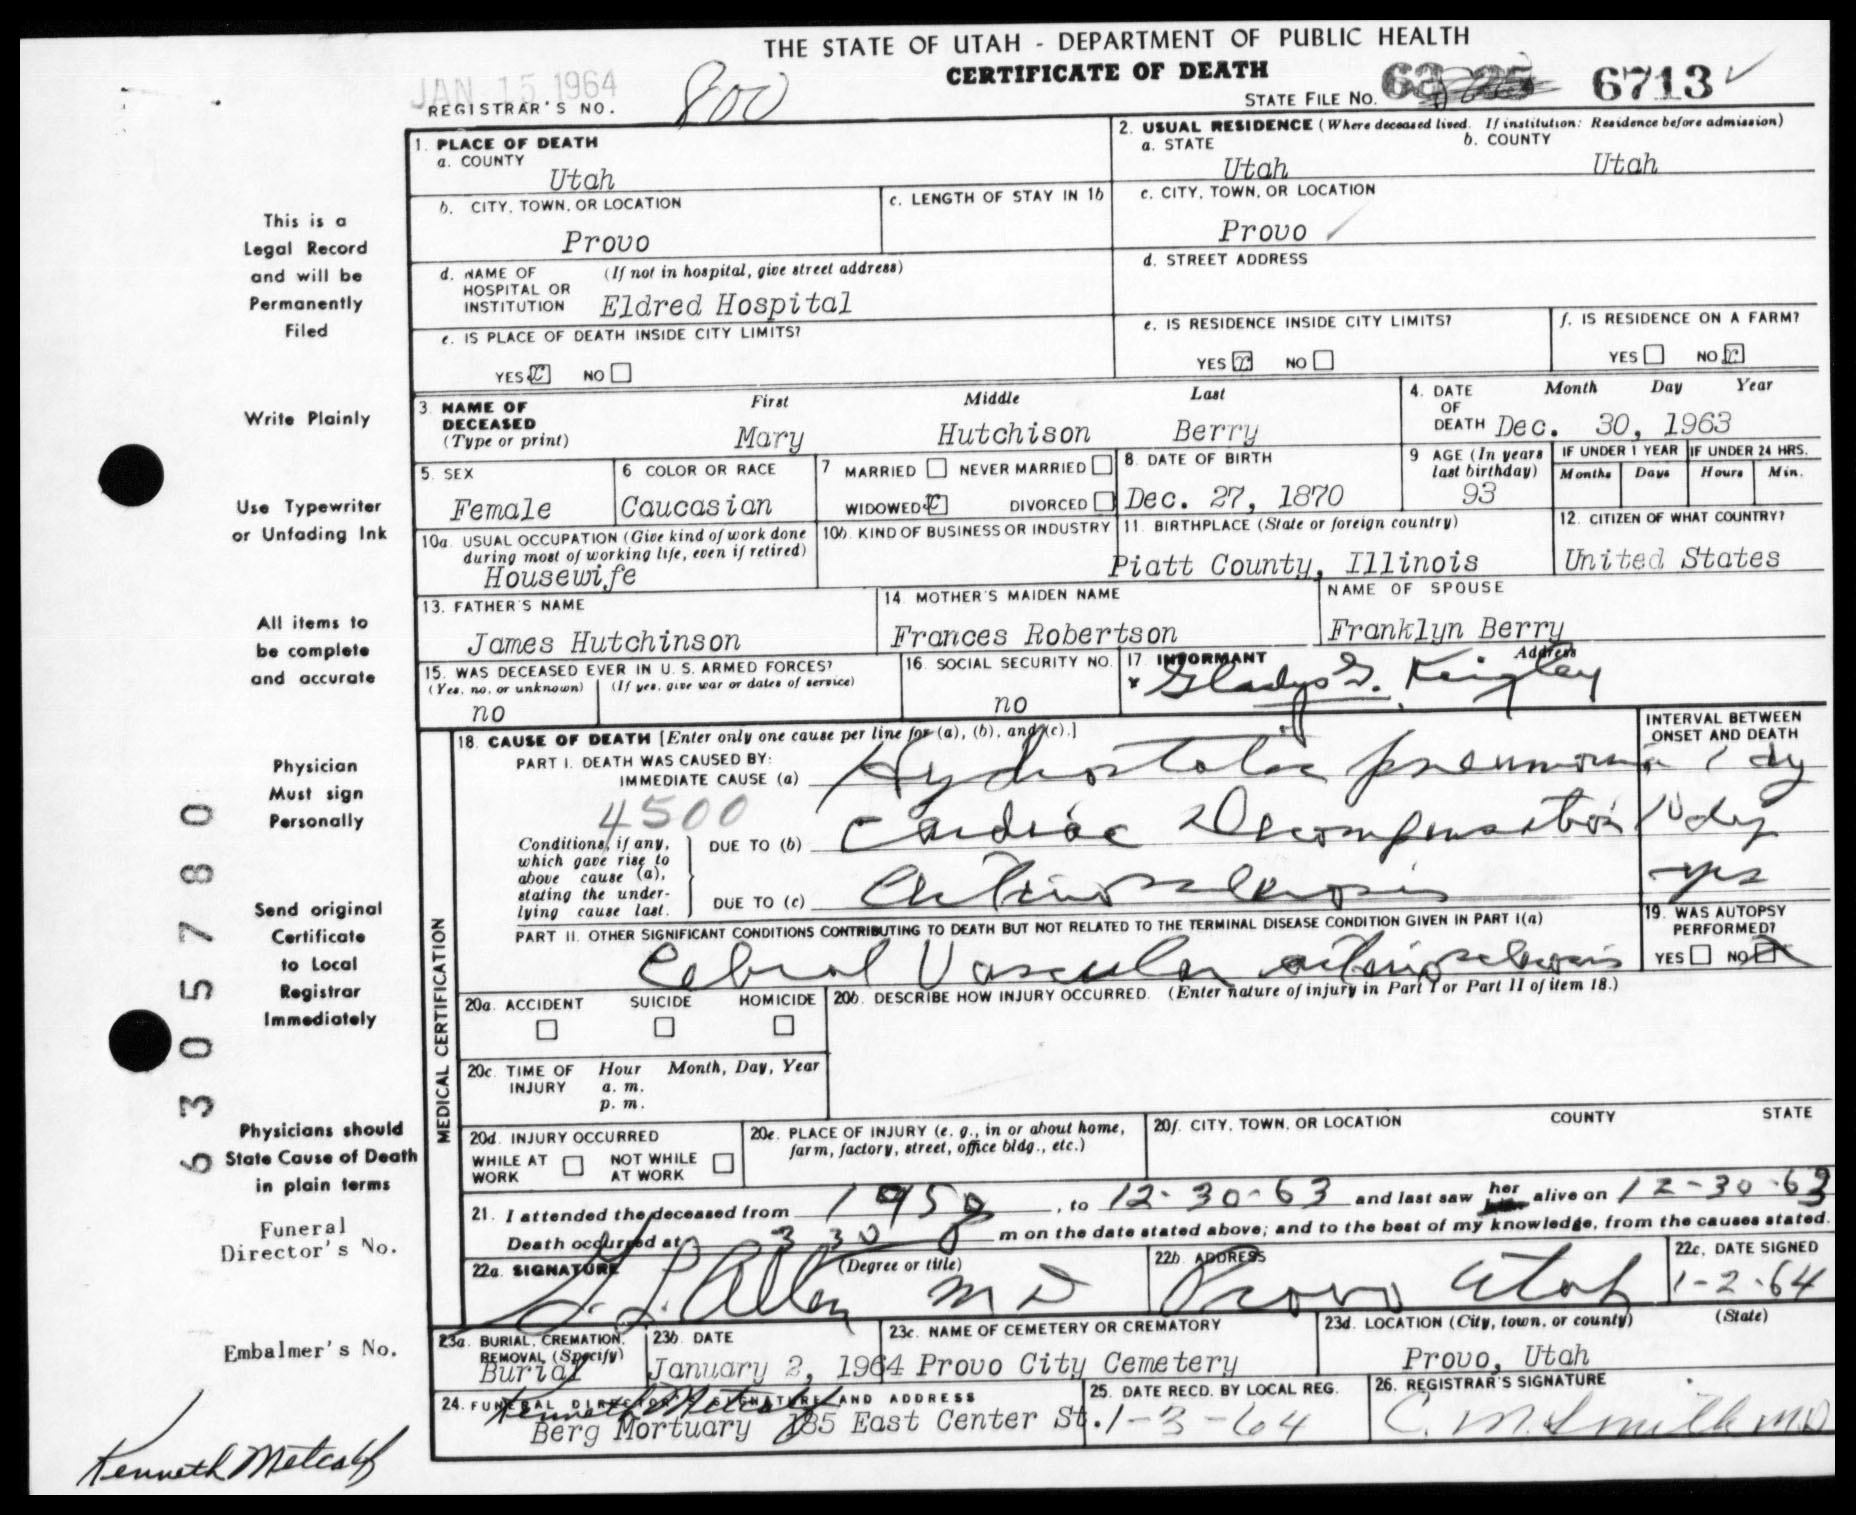 THE STATE OF UTAH - DEPARTMENT OF PUBLIC HEALTH
CERTIFICATE OF DEATH
JAN 15 1964
REGISTRAR'S NO. 800
STATE FILE NO. 63 25 6713 ✓
This is a
Legal Record
and will be
Permanently
Filed
Write Plainly
Use Typewriter
or Unfading Ink
All items to
be complete
and accurate
Physician
Must sign
Personally
Send original
Certificate
to Local
Registrar
Immediately
Physicians should
State Cause of Death
in plain terms
Funeral
Director's No.
Embalmer's No.
Kenneth Metcalf
6305780
1. PLACE OF DEATH
a. COUNTY
Utah
b. CITY, TOWN, OR LOCATION
Provo
c. LENGTH OF STAY IN 1b
d. NAME OF HOSPITAL OR INSTITUTION (If not in hospital, give street address)
Eldred Hospital
e. IS PLACE OF DEATH INSIDE CITY LIMITS?
YES x NO
2. USUAL RESIDENCE (Where deceased lived. If institution: Residence before admission)
a. STATE
Utah
b. COUNTY
Utah
c. CITY, TOWN, OR LOCATION
Provo ✓
d. STREET ADDRESS
e. IS RESIDENCE INSIDE CITY LIMITS?
YES x NO
f. IS RESIDENCE ON A FARM?
YES NO x
3. NAME OF DECEASED (Type or print)
First Middle Last
Mary Hutchison Berry
4. DATE OF DEATH Month Day Year
Dec. 30, 1963
5. SEX
Female
6 COLOR OR RACE
Caucasian
7 MARRIED NEVER MARRIED
WIDOWED x DIVORCED
8. DATE OF BIRTH
Dec. 27, 1870
9 AGE (In years last birthday)
93
IF UNDER 1 YEAR IF UNDER 24 HRS.
Months Days Hours Min.
10a. USUAL OCCUPATION (Give kind of work done during most of working life, even if retired)
Housewife
10b. KIND OF BUSINESS OR INDUSTRY
11. BIRTHPLACE (State or foreign country)
Piatt County, Illinois
12. CITIZEN OF WHAT COUNTRY?
United States
13. FATHER'S NAME
James Hutchinson
14. MOTHER'S MAIDEN NAME
Frances Robertson
NAME OF SPOUSE
Franklyn Berry
15. WAS DECEASED EVER IN U. S. ARMED FORCES?
(Yes, no, or unknown) (If yes, give war or dates of service)
no
16. SOCIAL SECURITY NO.
no
17. INFORMANT Address
x Gladys G. Keigley
MEDICAL CERTIFICATION
18. CAUSE OF DEATH [Enter only one cause per line for (a), (b), and (c).]
INTERVAL BETWEEN ONSET AND DEATH
PART I. DEATH WAS CAUSED BY:
IMMEDIATE CAUSE (a) Hydrostatic pneumonia 1 dy
4500
Conditions, if any, which gave rise to above cause (a), stating the underlying cause last.
DUE TO (b) Cardiac Decompensation 10 dy
DUE TO (c) Arteriosclerosis yrs
PART II. OTHER SIGNIFICANT CONDITIONS CONTRIBUTING TO DEATH BUT NOT RELATED TO THE TERMINAL DISEASE CONDITION GIVEN IN PART I(a)
Cebral Vascular arteriosclerosis
19. WAS AUTOPSY PERFORMED?
YES NO x
20a. ACCIDENT SUICIDE HOMICIDE
20b. DESCRIBE HOW INJURY OCCURRED. (Enter nature of injury in Part I or Part II of item 18.)
20c. TIME OF INJURY Hour Month, Day, Year
a. m.
p. m.
20d. INJURY OCCURRED
WHILE AT WORK NOT WHILE AT WORK
20e. PLACE OF INJURY (e. g., in or about home, farm, factory, street, office bldg., etc.)
20f. CITY, TOWN, OR LOCATION COUNTY STATE
21. I attended the deceased from 1958, to 12-30-63 and last saw her alive on 12-30-63
Death occurred at 3 30 m on the date stated above; and to the best of my knowledge, from the causes stated.
22a. SIGNATURE (Degree or title)
Allen M D
22b. ADDRESS
Provo Utah
22c. DATE SIGNED
1-2-64
23a. BURIAL, CREMATION, REMOVAL (Specify)
Burial
23b. DATE
January 2, 1964
23c. NAME OF CEMETERY OR CREMATORY
Provo City Cemetery
23d. LOCATION (City, town, or county) (State)
Provo, Utah
24. FUNERAL DIRECTOR'S SIGNATURE AND ADDRESS
Kenneth Metcalf
Berg Mortuary 185 East Center St.
25. DATE RECD. BY LOCAL REG.
1-3-64
26. REGISTRAR'S SIGNATURE
C. M. Smith M.D